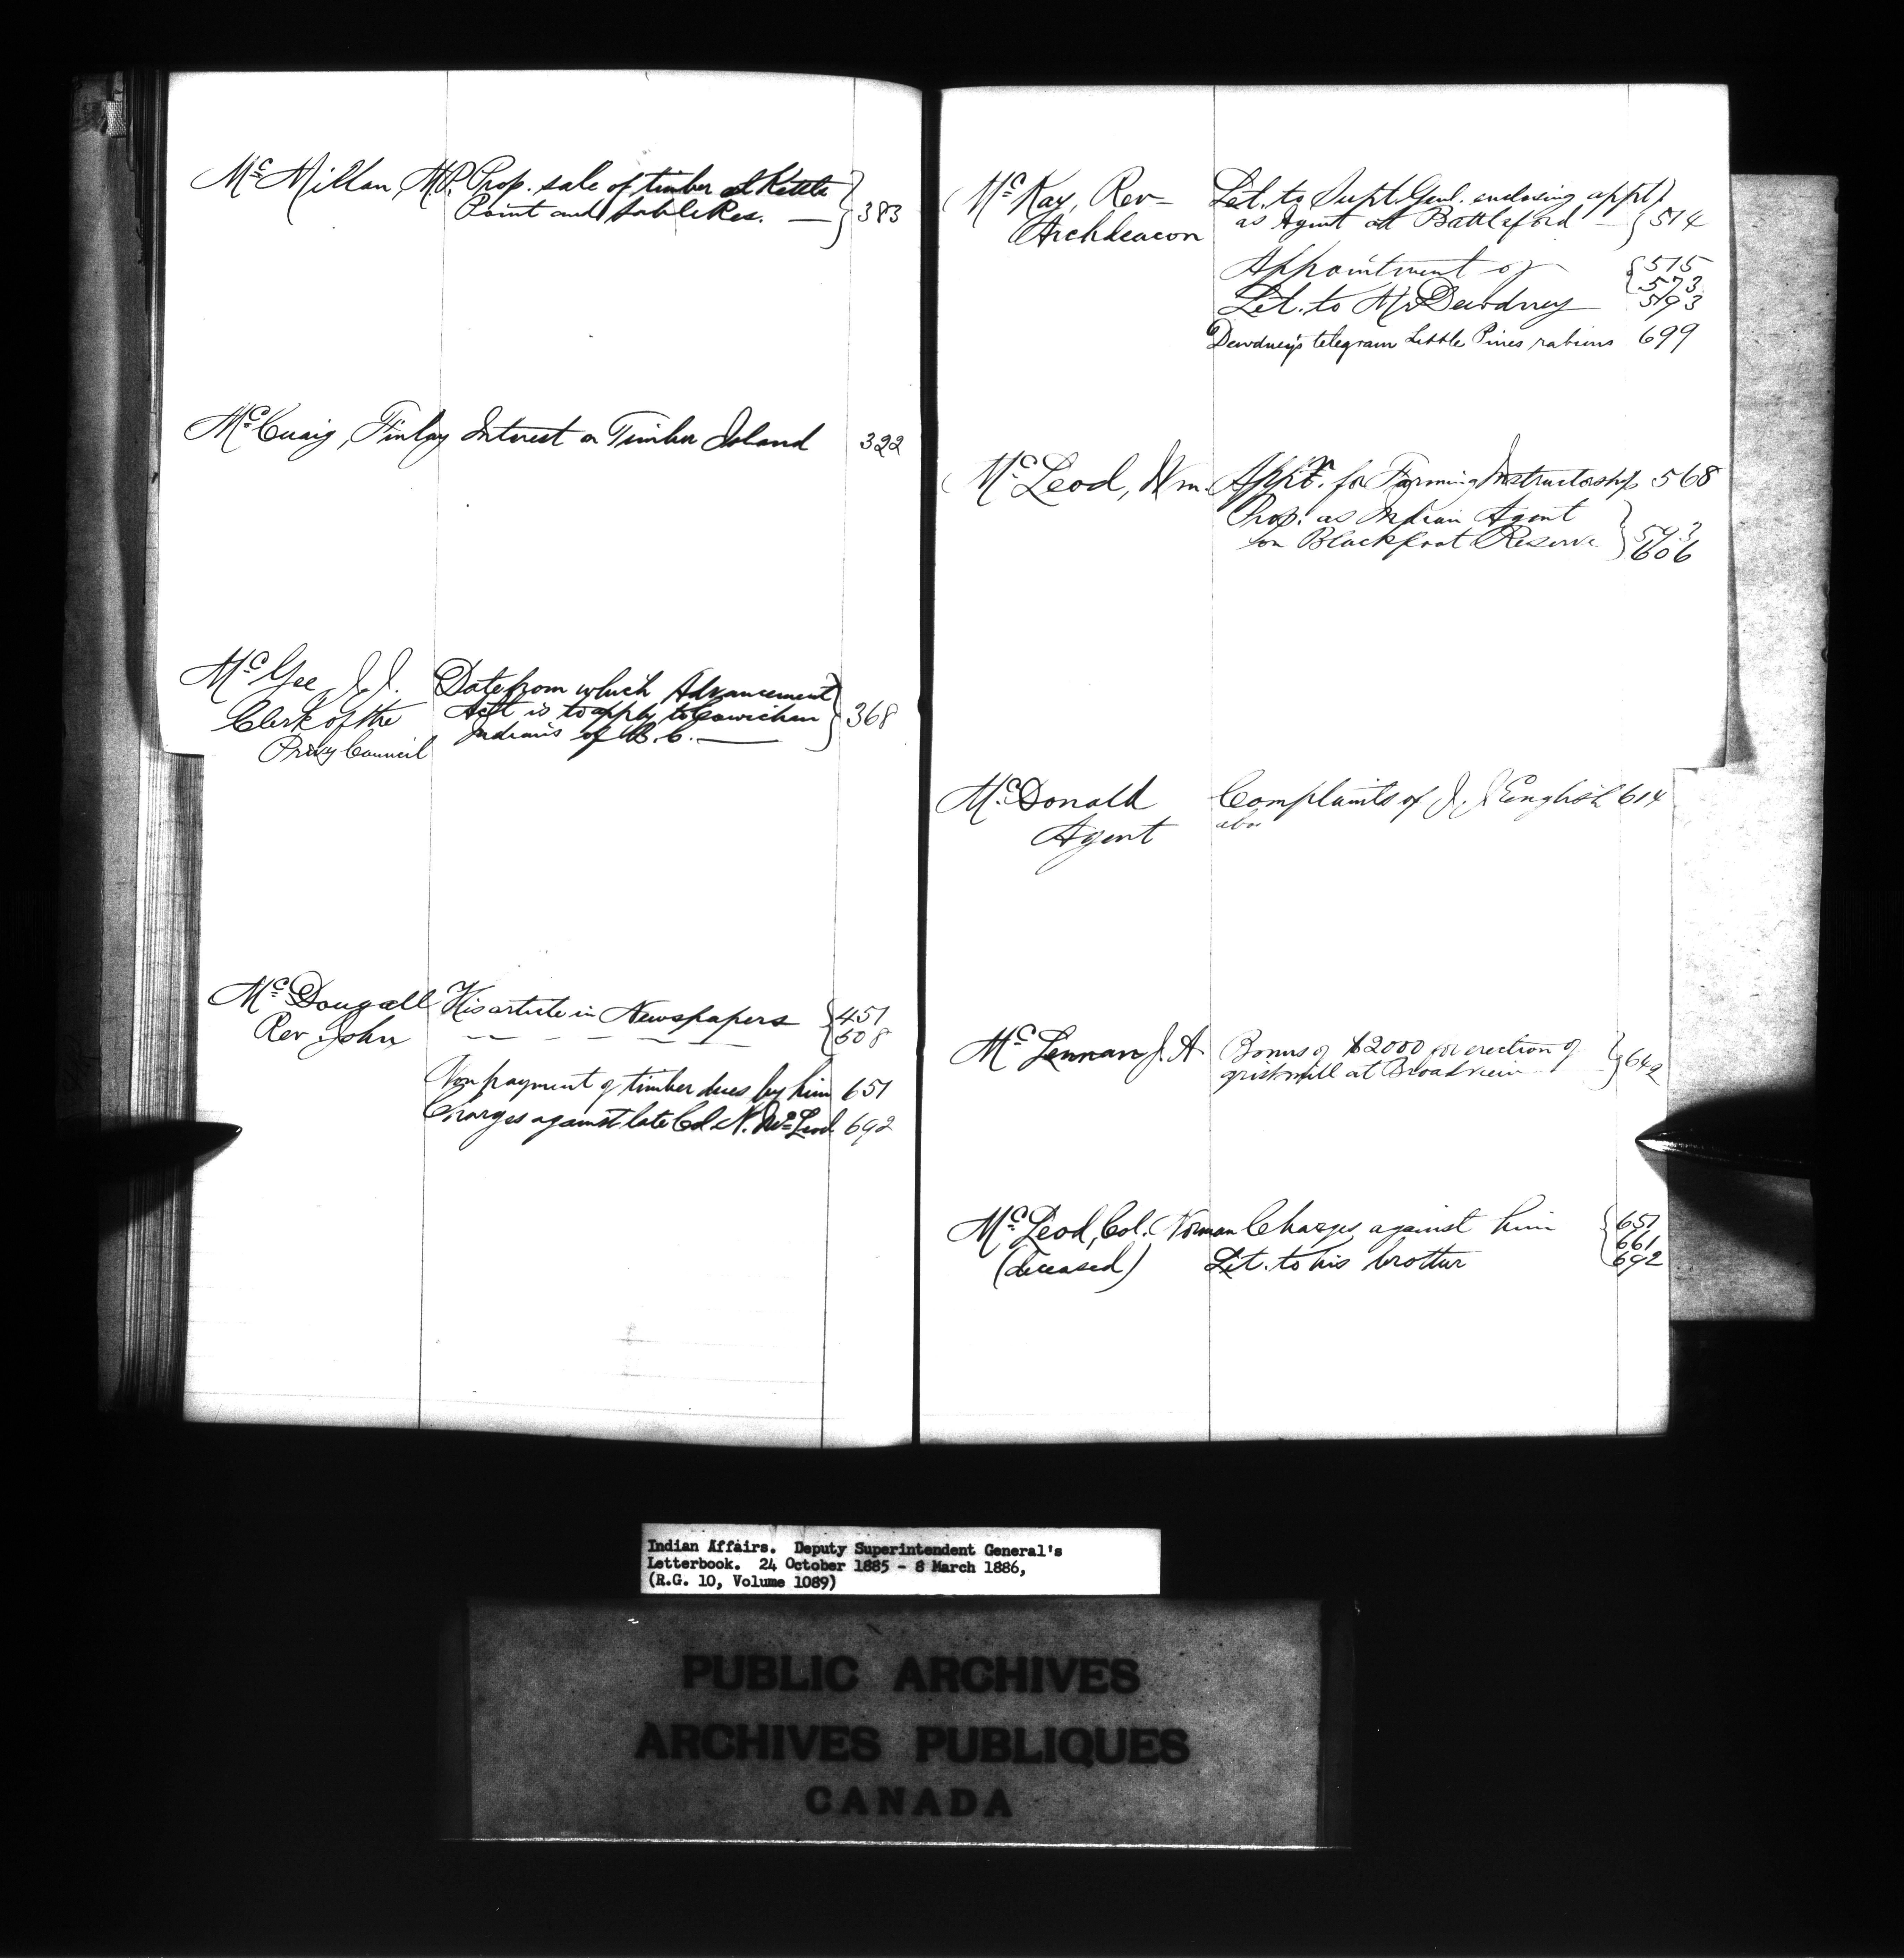 McMillan, M.P. Prop. sale of timber at Kettle
Point and Sable Res. — 383
McCuaig, Finlay Interest on Timber Island 322
McGee, J. J. Date from which Advancement
Clerk of the Act is to apply to Cowichan 368
Privy Council Indians of B.C. —
McDougall His article in Newspapers 451
Rev. John — — — — — — 508
Non payment of timber dues by him 651
Charges against late Col. N. McLeod 692
McKay, Rev— Let. to Supt. Genl. enclosing appt.
Archdeacon as Agent at Battleford — 514
Appointment of 515
573
Let. to Mr Dewdney 593
Dewdney's telegram Little Pines rations 699
McLeod, Wm. Appn. for Farming Instructorship 568
Prop. as Indian Agent
on Blackfoot Reserve 593
606
McDonald Complaints of J. J. English 614
Agent
McLennan J. A Bonus of $2000 for erection of
gristmill at Broadview 642
McLeod, Col. Norman Charges against him 651
661
(deceased) Let. to his brother 692
Indian Affairs. Deputy Superintendent General's
Letterbook. 24 October 1885 - 8 March 1886,
(R.G. 10, Volume 1089)
PUBLIC ARCHIVES
ARCHIVES PUBLIQUES
CANADA